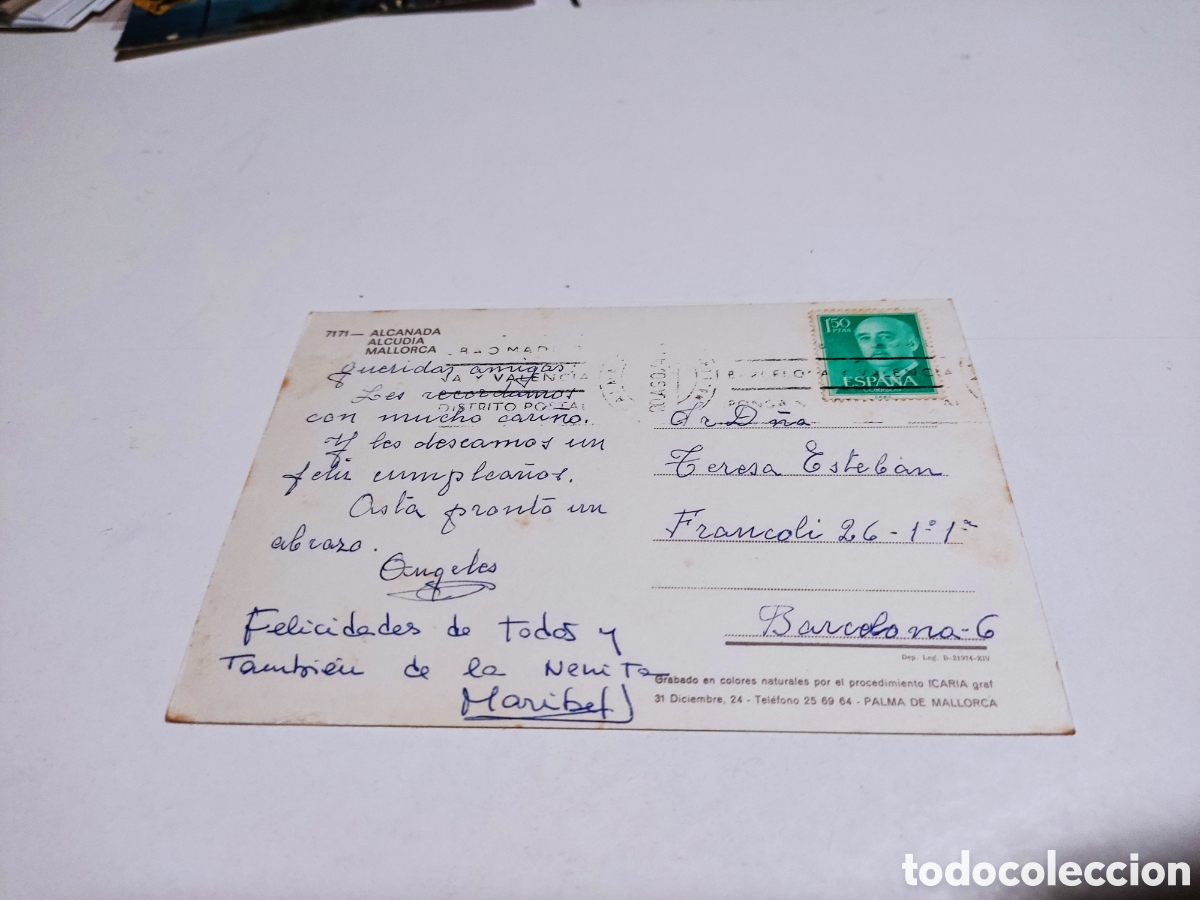 7171 — ALCANADA
ALCUDIA
MALLORCA
queridas amigas:
Les recordamos
con mucho cariño.
Y les deseamos un
feliz cumpleaños.
Asta pronto un
abrazo.
Angeles
Felicidades de Todos y
También de la Nenita
Maribel
1'50
PTAS
ESPAÑA
JA Y VALENCIA
DISTRITO POSTAL
Y VALENCIA
Sr Dña
Teresa Esteban
Francoli 26 - 1º 1ª
Barcelona-6
Dep. Leg. B-21914-XIV
Grabado en colores naturales por el procedimiento ICARIA graf
31 Diciembre, 24 - Teléfono 25 69 64 - PALMA DE MALLORCA
todocoleccion